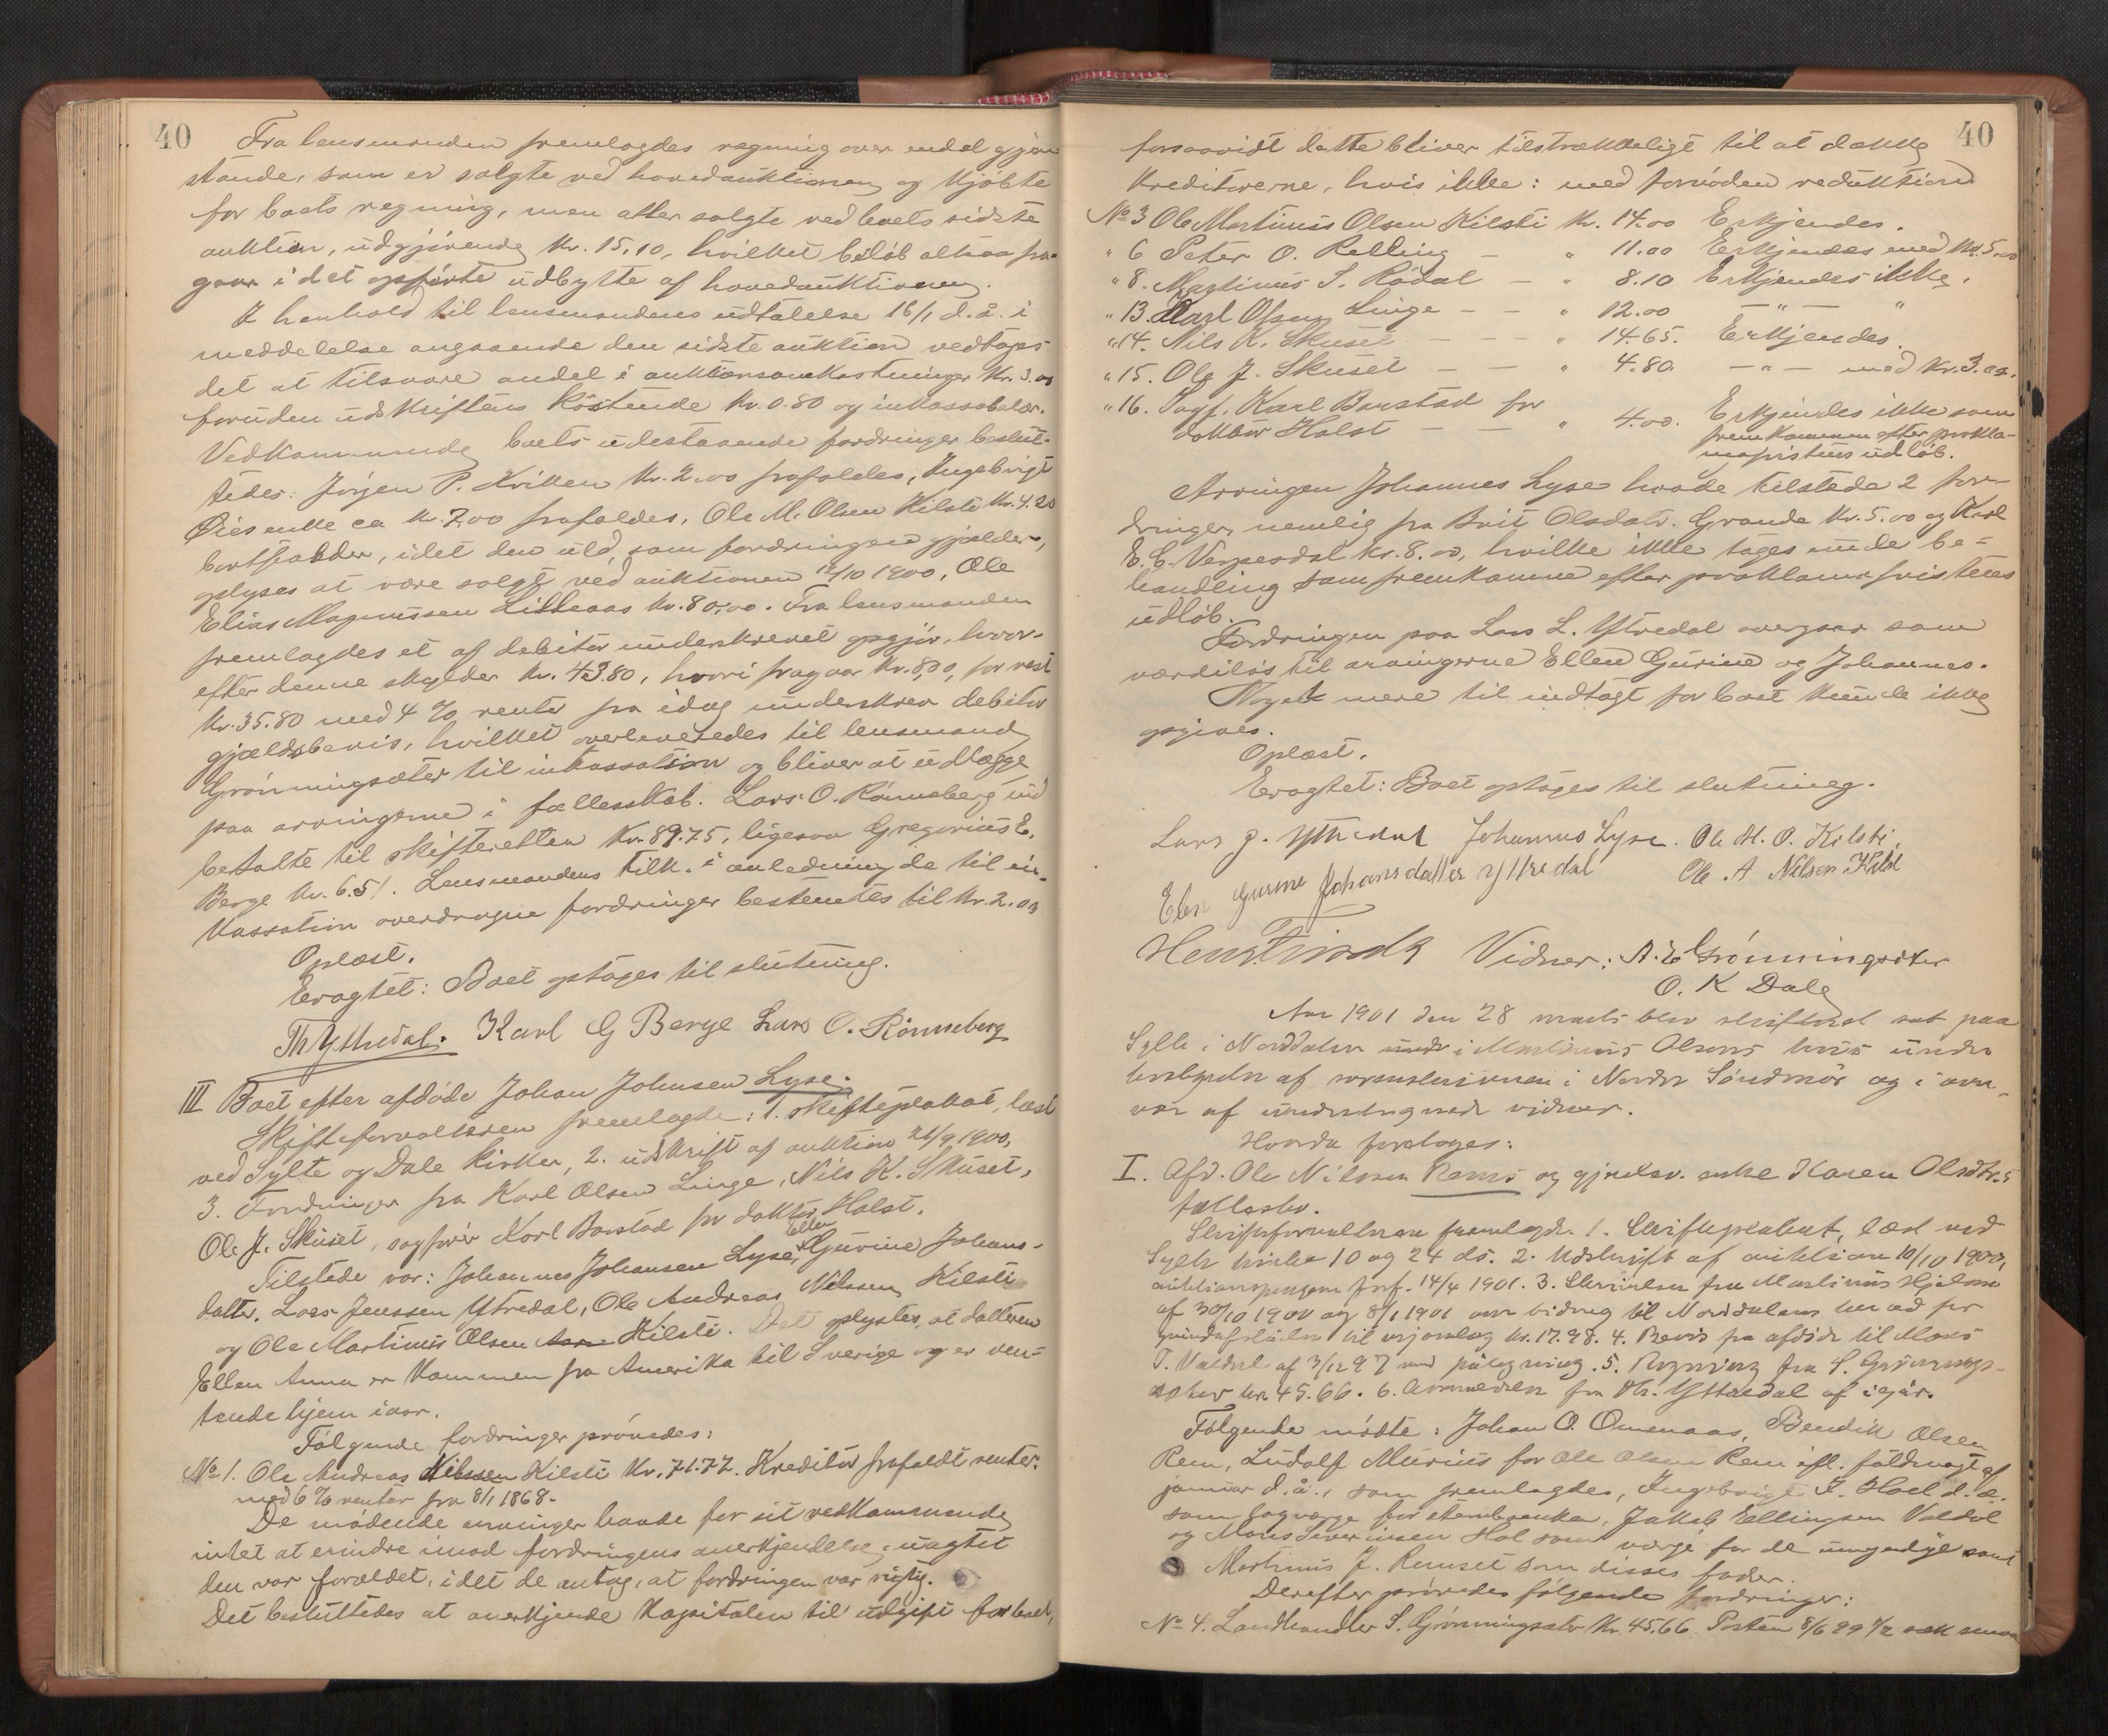 40
Fra lensmanden fremlagdes regning over endel gjen-
stande, som er solgte ved hovedauktionen og kjøbte
for boets regning, men atter solgte ved boets sidste
auktion, udgjørende Kr. 15.10, hvilket beløb altsaa fra-
gaar i det opførte udbytte af hovedauktionen.
I henhold til lensmandens udtalelse 16/1 d.å. i
meddelelse angaaende den sidste auktion vedtoges
det at tilsvare andel i auktionsomkostninger Kr. 3.00
foruden udskriftens kostende Kr. 0.80 og inkassosalær.
Vedkommende boets udestaaende fordringer beslut-
tedes: Jørgen P. Kviken Kr. 2.00 frafaldes, Ingebrigt
Øies enke ca Kr. 7,00 frafaldes, Ole M. Olsen Kilsti Kr. 4.20
bortfalder, idet den uld, som fordringen gjælder,
oplyses at være solgt ved auktionen 12/10 1900, Ole
Elias Magnussen Lilleaas Kr. 80.00. Fra lensmanden
fremlagdes et af debitor underskrevet opgjør, hvor-
efter denne skylder Kr. 43.80, hvori fragaar Kr. 8,00, for rest
Kr. 35.80 med 4 % renter fra idag underskrev debitor
gjældsbevis, hvilket overleveredes til lensmand
Grønningsæter til inkassation og bliver at udlægge
paa arvingerne i fællesskab. Lars O. Rønneberg ind
betalte til skifteretten Kr. 89.75, ligesaa Gregorius E.
Berge Kr. 6.51. Lensmandens tilk. i anledning de til in-
kassation overdragne fordringer bestemtes til Kr. 2.00
Oplæst.
Eragtet: Boet optages til slutning.
Th Yttredal. Karl G Berge Lars O. Rønneberg
III Boet efter afdøde Johan Johnsen Lyse.
Skifteforvalteren fremlagde: 1. skifteplakat, læst
ved Sylte og Dale kirker, 2. udskrift af auktion 21/9 1900,
3. Fordringer fra Karl Olsen Linge, Nils K. Skuset,
Ole J. Skuset, sagfører Karl Barstad for doktor Holst.
Tilstede var: Johannes Johansen Lyse, Ellen Gurine Johans-
datter, Lars Jenssen Ytredal, Ole Andreas Nilssen Kilsti
og Ole Martinus Olsen Kilsti. Det oplystes, at datteren
Ellen Anna er kommen fra Amerika til Sverige og er ven-
tende hjem iaar.
Følgende fordringer prøvedes:
No 1. Ole Andreas Nilssen Kilsti Kr. 71.72. Kreditor frafaldt renter.
med 6 % renter fra 8/1 1868.
De mødende arvinger havde for sit vedkommende
intet at erindre imod fordringens anerkjendelse, uagtet
den var forældet, idet de antog, at fordringen var rigtig.
Det besluttedes at anerkjende kapitalen til udgift for boet,
40
forsaavidt dette bliver tilstrækkeligt til at dække
kreditorerne, hvis ikke: med fornøden reduktion
No 3 Ole Martinus Olsen Kilsti Kr. 14.00 Erkjendes.
" 6 Peter O. Relling — " 11.00 Erkjendes med Kr. 5.00
" 8. Martinus S. Rødal — " 8.10 Erkjendes ikke.
" 13. Karl Olsen Linge — — " 12.00 — " — "
" 14. Nils K. Skuset — — — " 14.65. Erkjendes.
" 15. Ole J. Skuset — — " 4.80. — " — med Kr. 3.00.
" 16. Sagf. Karl Barstad for
doktor Holst — — " 4.00. Erkjendes ikke som
fremkommen efter prokla-
mafristens udløb.
Arvingen Johannes Lyse havde tilstede 2 for-
dringer, nemlig fra Brit Olsdatr. Grande Kr. 5.00 og Karl
E. E. Verpesdal Kr. 8.00, hvilke ikke toges under be-
handling som fremkomne efter proklamafristens
udløb.
Fordringen paa Lars L. Ytredal overgaar som
værdiløs til arvingerne Ellen Gurine og Johannes.
Noget mere til indtægt for boet kunde ikke
opgives.
Oplæst.
Eragtet: Boet optages til slutning.
Lars J. Yttredal Johannes Lyse. Ole M. O. Kilsti.
Elen Gurine Johansdatter Yttredal Ole A Nilsen Kilsti
Vidner: A. E Grønningsæter
O. K Dale
Aar 1901 den 28 marts blev skifteret sat paa
Sylte i Norddalen i Martinus Olsens hus under
bestyrelse af sorenskriveren i Nordre Søndmør og i over-
vær af undertegnede vidner.
Hvorda foretoges:
I. Afd. Ole Nilssen Rems og gjenlev. enke Karen Olsdtr.s
fællesbo.
Skifteforvalteren fremlagde. 1. Skifteplakat, læst ved
Sylte kirke 10 og 24 ds. 2. Udskrift af auktion 10/10 1900,
auktionspengene forf. 14/4 1901. 3. Skrivelser fra Martinus Hjelme
af 30/10 1900 og 8/1 1901 om bidrag til Norddalens herred for
Kr. 17.98. 4. Bevis fra afdøde til Mons
T. Valdal af 3/12 97 med paategning. 5. Regning fra S. Grønnings-
æter Kr. 45.66. 6. Anmeldelse fra Th. Yttredal af igår.
Følgende mødte: Johan O. Omenaas, Bendik Olsen
Rem, Ludolf Murius for Ole Olsen Rem ifl. fuldmagt af
januar d.å., som fremlagdes, Ingebrigt I. Hoel d.æ.
som lagværge for sterboenken, Jakob Ellingsen Valdal
og Mons Severinsen Hol som værge for de umyndige samt
Martinus J. Remset som disses fader.
Derefter prøvedes følgende fordringer:
No 4. Landhandler S. Grønningsæter Kr. 45.66. Posten 8/6 99 1/2 sæk